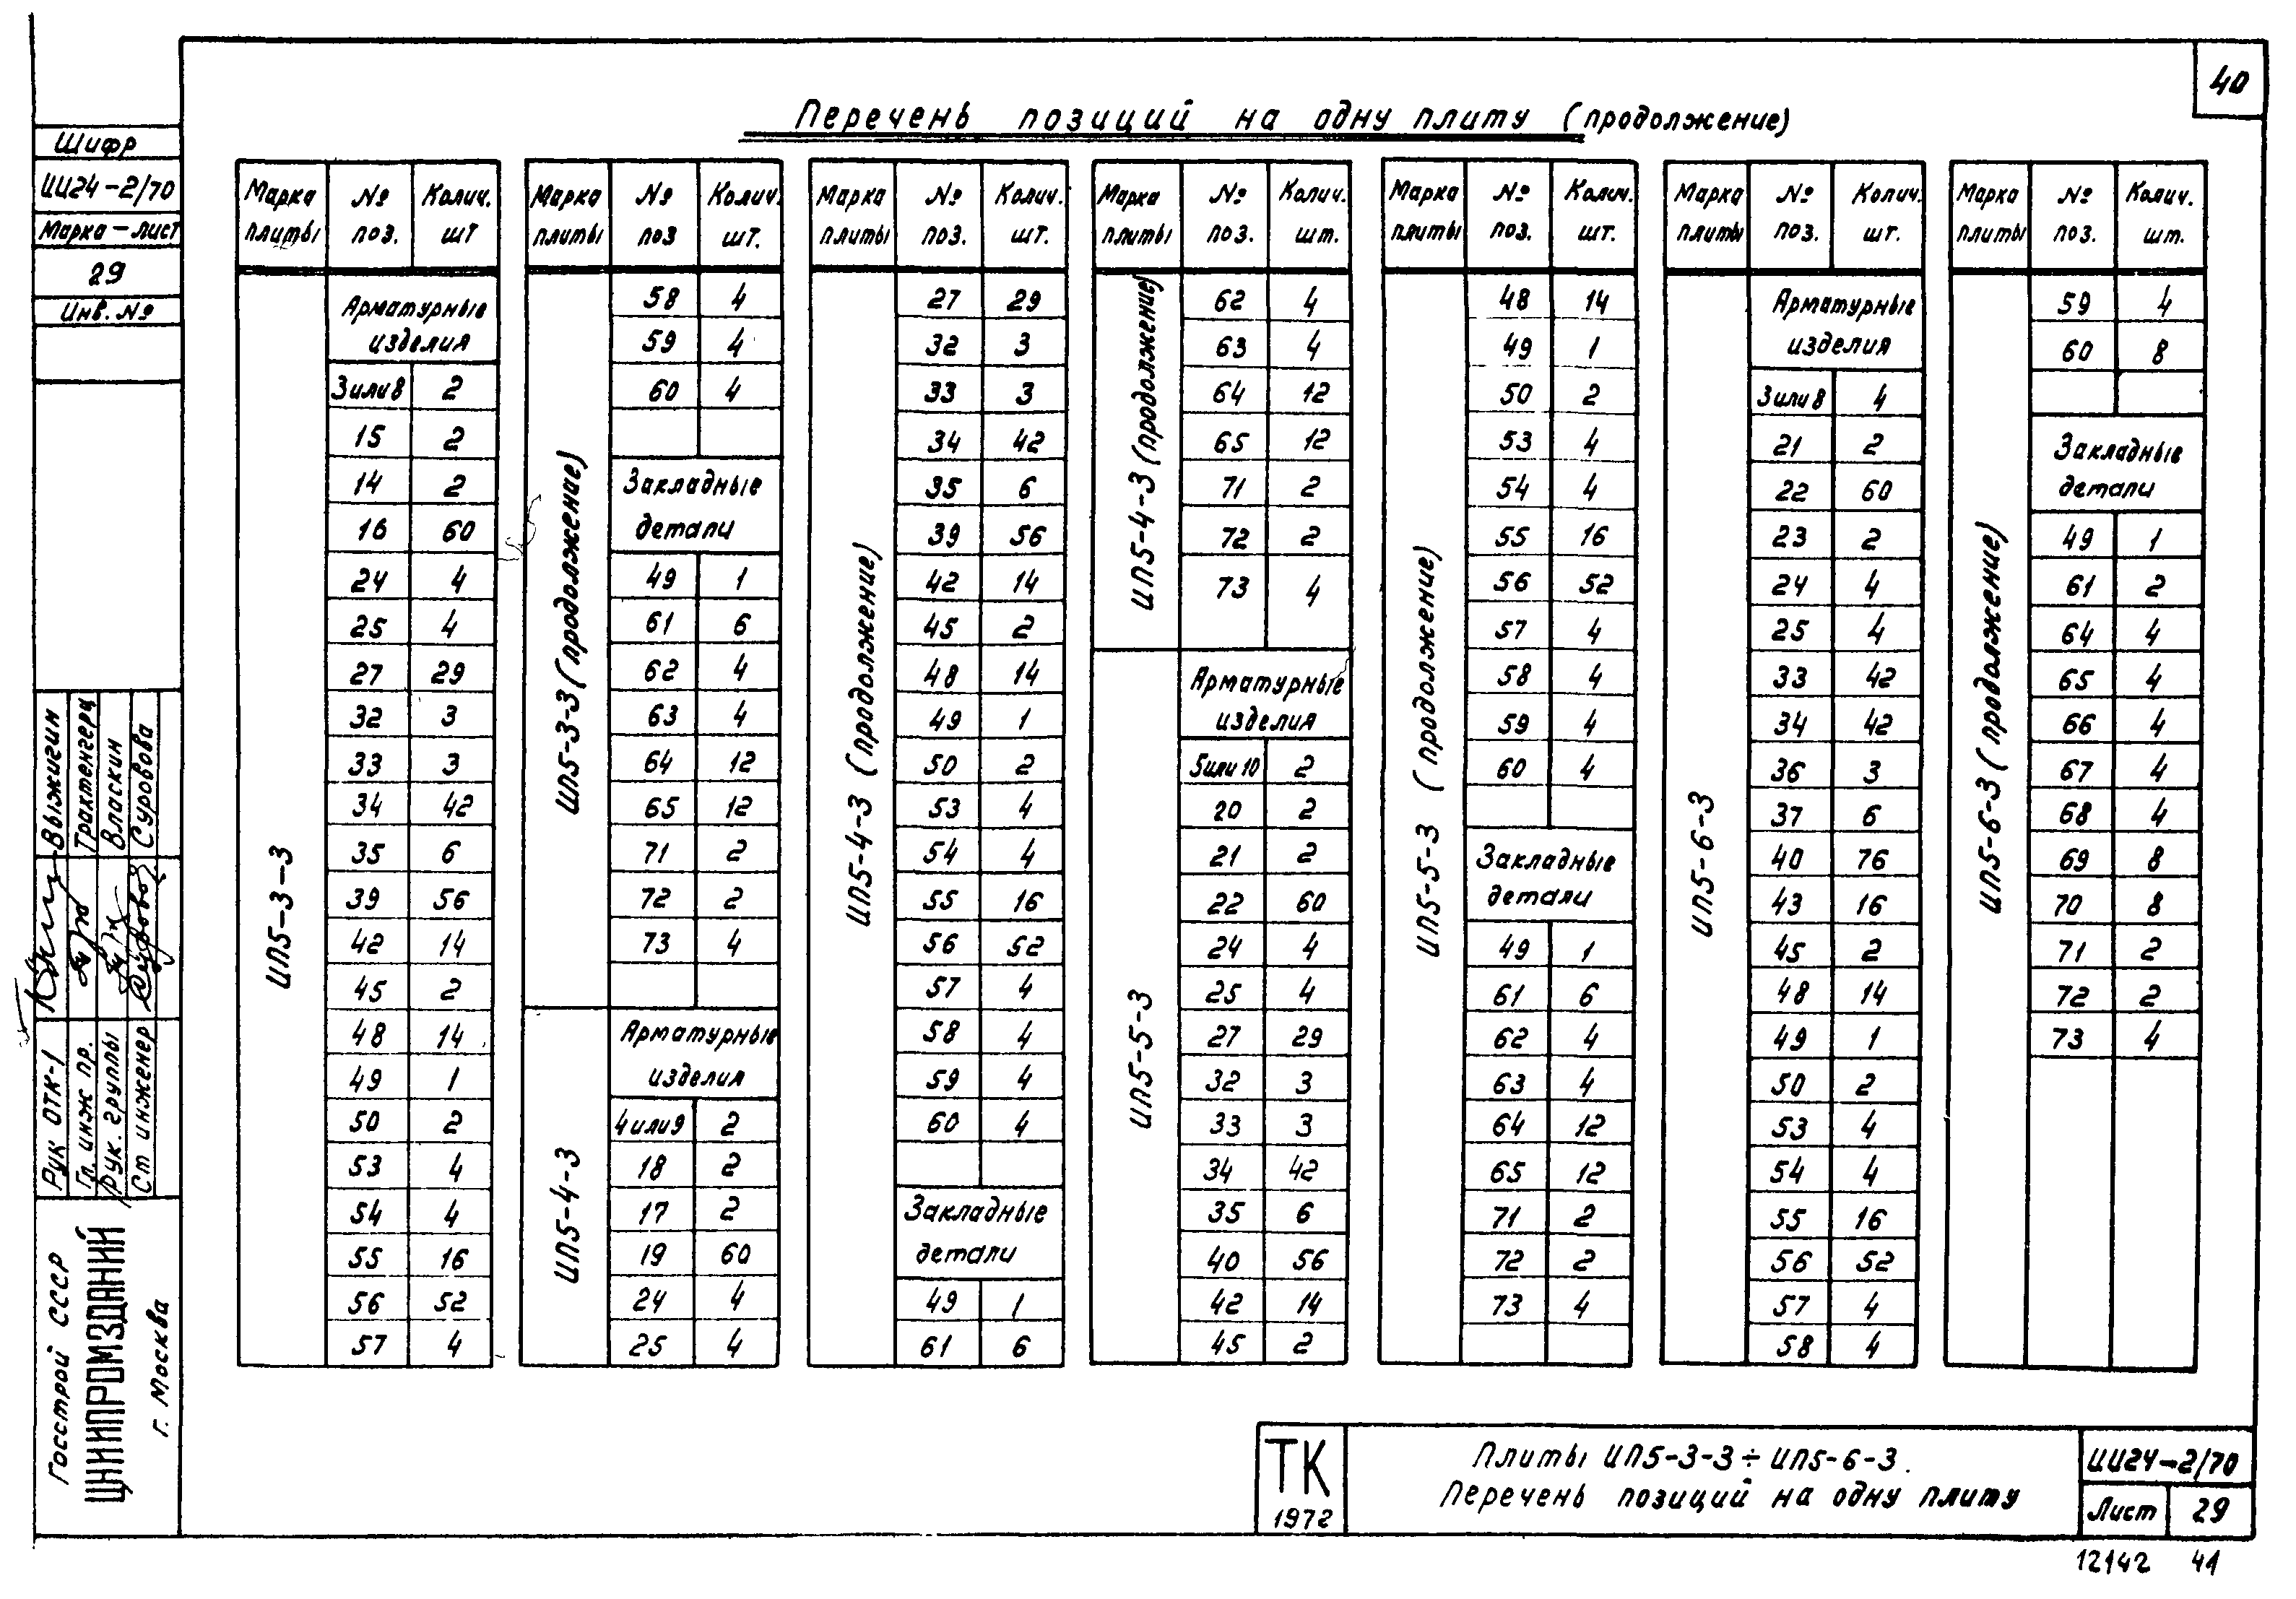 40
Перечень позиций на одну плиту (продолжение)
Шифр
ИИ24-2/70
Марка-лист
29
Инв. №
Выжигин
Трахтенгерц
Власкин
Суровова
Рук ОТК-1
Гл. инж пр.
Рук. группы
Ст инженер
Госстрой СССР
ЦНИИПРОМЗДАНИЙ
г. Москва
Марка плиты № поз. Колич. шт
ИП5-3-3
Арматурные
изделия
3 или 8 2
15 2
14 2
16 60
24 4
25 4
27 29
32 3
33 3
34 42
35 6
39 56
42 14
45 2
48 14
49 1
50 2
53 4
54 4
55 16
56 52
57 4
Марка плиты № поз Колич. шт.
ИП5-3-3 (продолжение)
58 4
59 4
60 4
Закладные
детали
49 1
61 6
62 4
63 4
64 12
65 12
71 2
72 2
73 4
ИП5-4-3
Арматурные
изделия
4 или 9 2
18 2
17 2
19 60
24 4
25 4
Марка плиты № поз. Колич. шт.
ИП5-4-3 (продолжение)
27 29
32 3
33 3
34 42
35 6
39 56
42 14
45 2
48 14
49 1
50 2
53 4
54 4
55 16
56 52
57 4
58 4
59 4
60 4
Закладные
детали
49 1
61 6
Марка плиты № поз. Колич. шт.
ИП5-4-3 (продолжение)
62 4
63 4
64 12
65 12
71 2
72 2
73 4
ИП5-5-3
Арматурные
изделия
5 или 10 2
20 2
21 2
22 60
24 4
25 4
27 29
32 3
33 3
34 42
35 6
40 56
42 14
45 2
Марка плиты № поз. Колич. шт.
ИП5-5-3 (продолжение)
48 14
49 1
50 2
53 4
54 4
55 16
56 52
57 4
58 4
59 4
60 4
Закладные
детали
49 1
61 6
62 4
63 4
64 12
65 12
71 2
72 2
73 4
Марка плиты № поз. Колич. шт.
ИП5-6-3
Арматурные
изделия
3 или 8 4
21 2
22 60
23 2
24 4
25 4
33 42
34 42
36 3
37 6
40 76
43 16
45 2
48 14
49 1
50 2
53 4
54 4
55 16
56 52
57 4
58 4
Марка плиты № поз. Колич. шт.
ИП5-6-3 (продолжение)
59 4
60 8
Закладные
детали
49 1
61 2
64 4
65 4
66 4
67 4
68 4
69 8
70 8
71 2
72 2
73 4
ТК
1972
Плиты ИП5-3-3÷ИП5-6-3.
Перечень позиций на одну плиту
ИИ24-2/70
Лист 29
12142 41